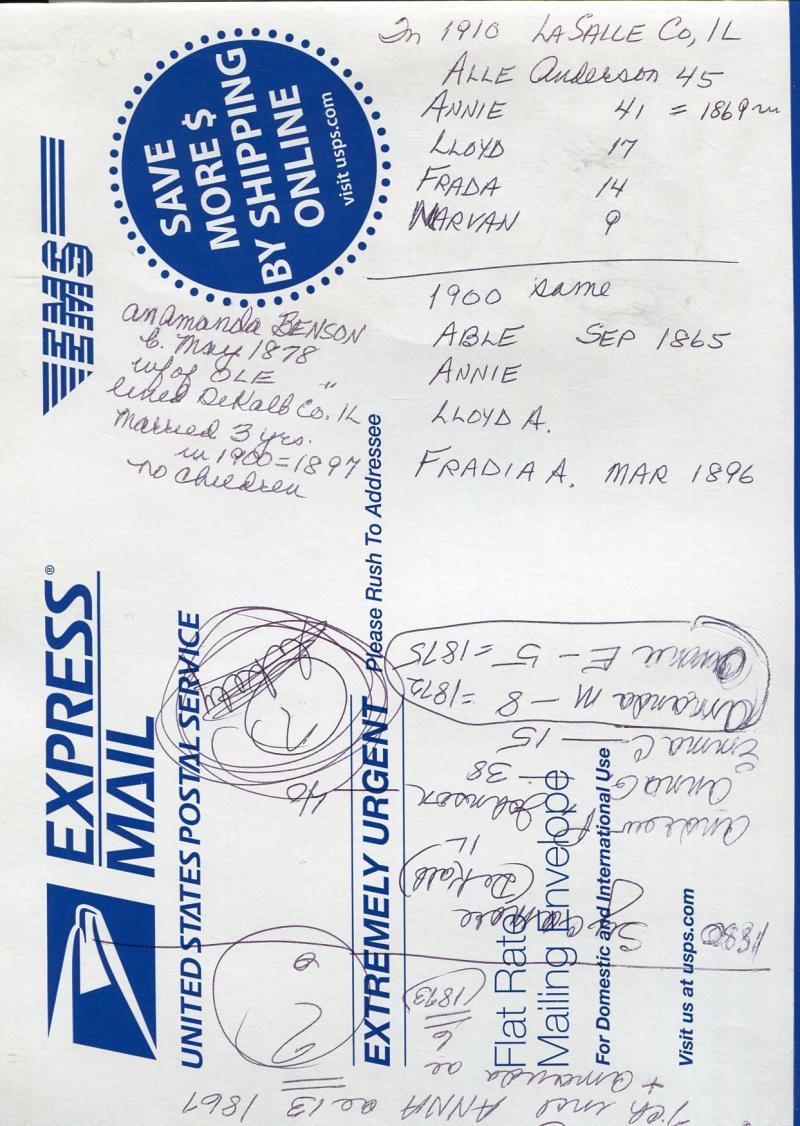 In 1910 LASALLE Co, IL
ALLE Anderson 45
ANNIE 41 = 1869
LLOYD 17
FRADA 14
MARVAN 9
1900 same
ABLE SEP 1865
ANNIE
LLOYD A.
FRADIA A. MAR 1896
an Amanda BENSON
b. May 1878
wf of OLE "
lived DeKalb Co. IL
married 3 yrs.
in 1900 = 1897
no children
SAVE
MORE $
BY SHIPPING
ONLINE
visit usps.com
EMS
EXPRESS®
MAIL
UNITED STATES POSTAL SERVICE
EXTREMELY URGENT Please Rush To Addressee
Flat Rate
Mailing Envelope
For Domestic and International Use
Visit us at usps.com
ANNA ae 13 1867
+ Amanda ae 6 (1873)
?
1880
(DeKalb)
IL
Andrew Johnson 40
Anna G 38
Emma C — 15
Amanda M — 8 = 1872
E — 5 = 1875
?